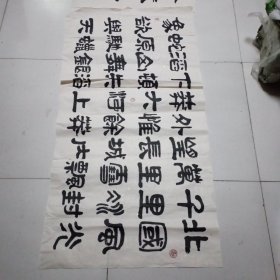 北國風光
千里冰封
萬里雪飄
望長城内
外惟餘莽
莽大河上
下頓失滔
滔山舞銀
蛇原馳蠟
象欲與天